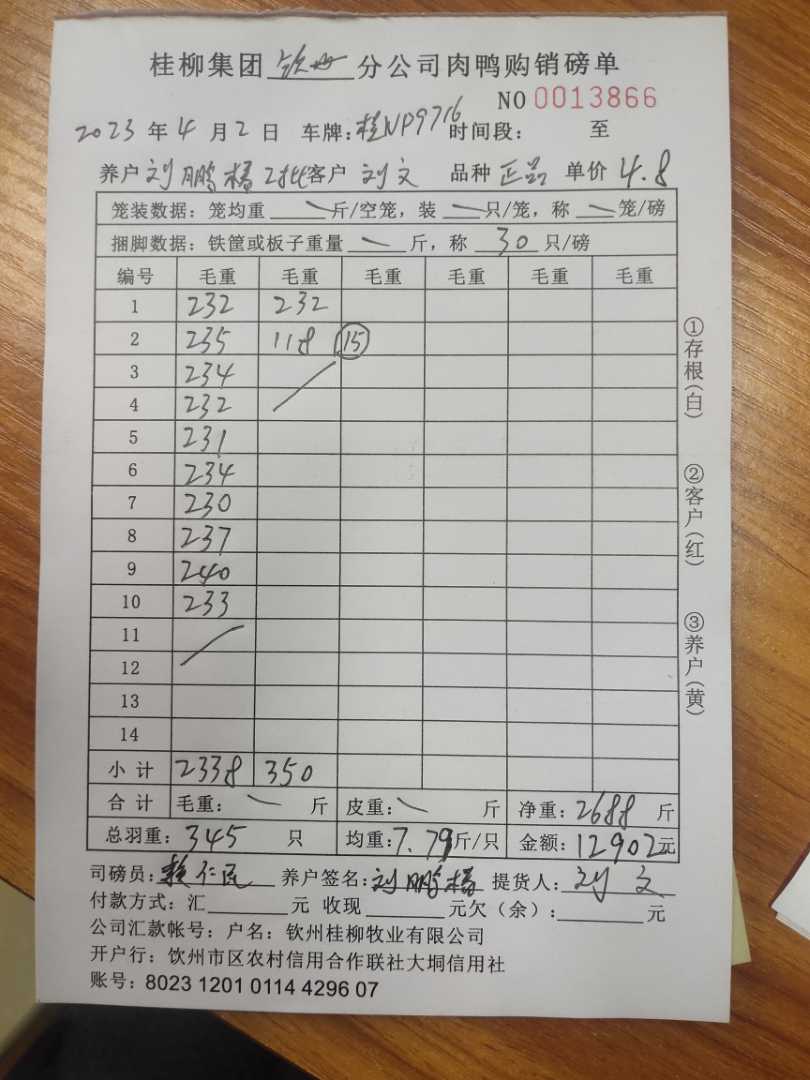 桂柳集团 钦州 分公司肉鸭购销磅单
NO 0013866
2023 年 4 月 2 日 车牌：桂NP9716 时间段： 至
养户 刘鹏椿 2批 客户 刘文 品种 正品 单价 4.8
笼装数据：笼均重 — 斤/空笼，装 — 只/笼，称 — 笼/磅
捆脚数据：铁筐或板子重量 — 斤，称 30 只/磅
编号 毛重 毛重 毛重 毛重 毛重 毛重
1 232 232
2 235 118 15
3 234
4 232
5 231
6 234
7 230
8 237
9 240
10 233
11
12
13
14
小计 2338 350
合计 毛重： — 斤 皮重： — 斤 净重：2688 斤
总羽重：345 只 均重：7.79斤/只 金额：12902元
司磅员：赖仁民 养户签名：刘鹏椿 提货人：刘文
付款方式：汇 元 收现 元欠（余）： 元
公司汇款帐号：户名：钦州桂柳牧业有限公司
开户行：钦州市区农村信用合作联社大垌信用社
账号：8023 1201 0114 4296 07
①存根（白）
②客户（红）
③养户（黄）